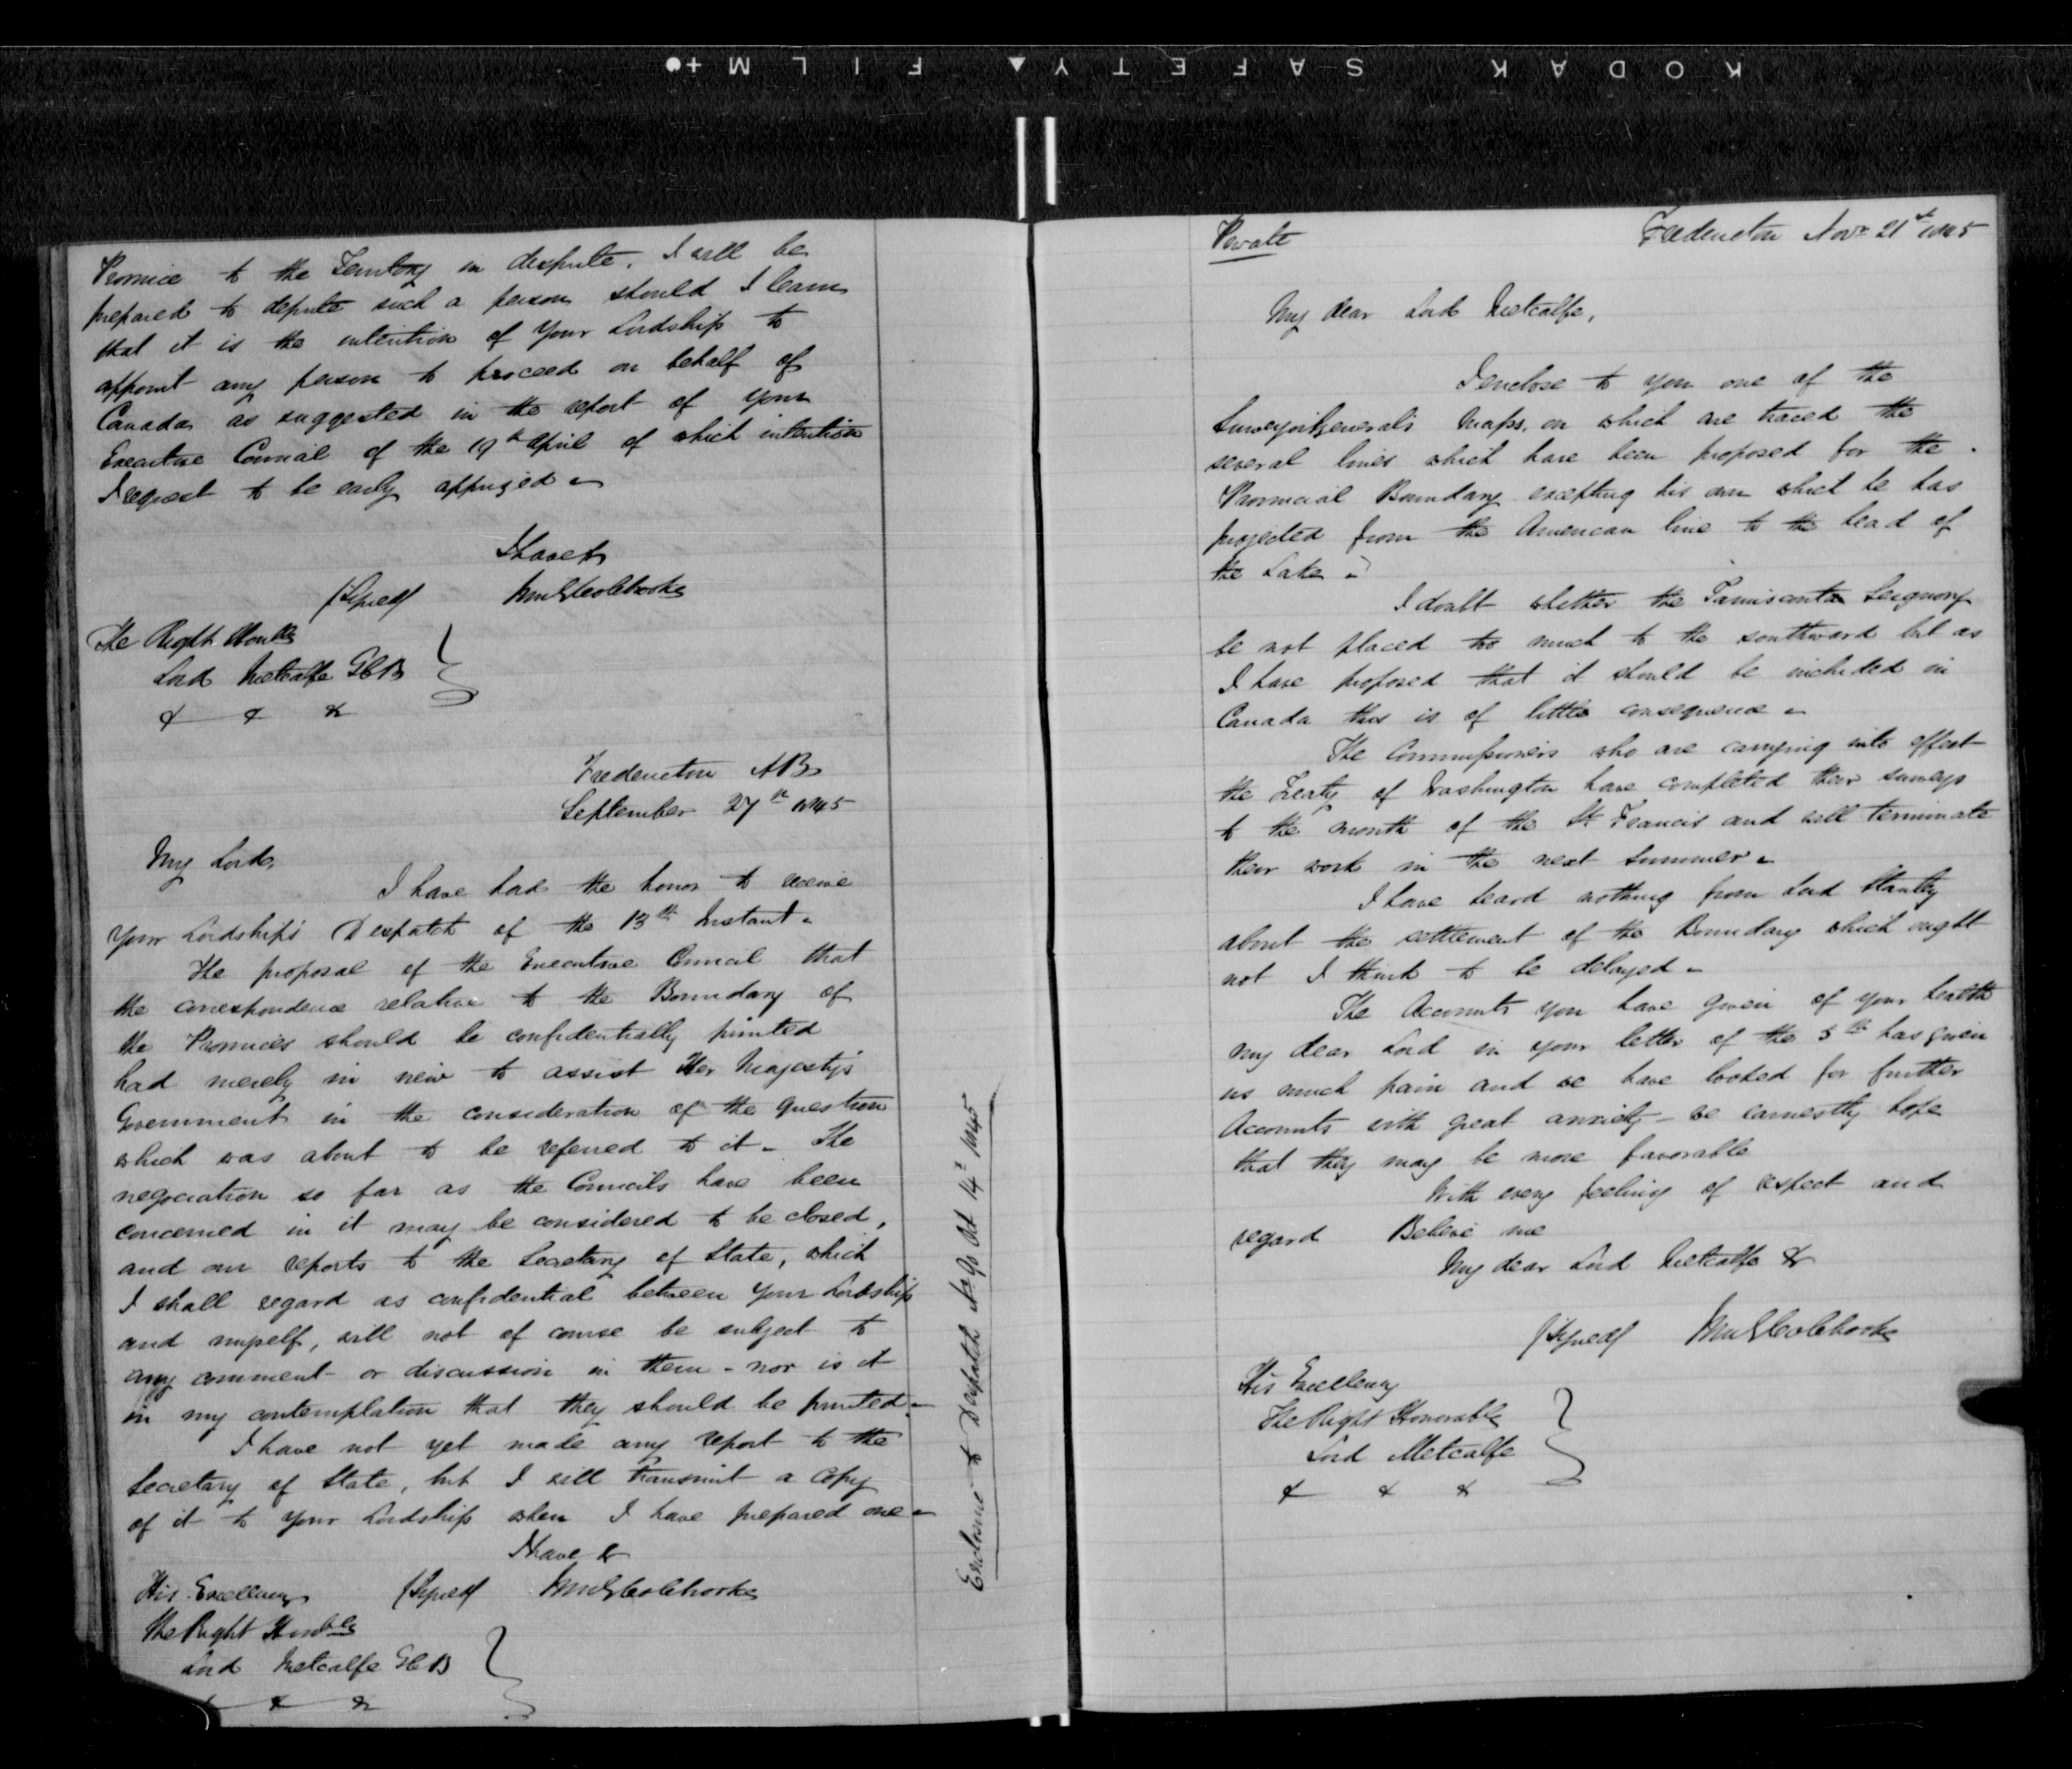 KODAK SAFETY FILM
Province to the Territory in dispute, I will be
prepared to depute such a person should I learn
that it is the intention of Your Lordship to
appoint any person to proceed on behalf of
Canada as suggested in the report of your
Executive Council of the 19th April of which intention
I request to be early apprized
I have &
(Signed) Wm G Colebrooke
The Right Honble
Lord Metcalfe GCB
& & &
Fredericton NB
September 27th 1845
My Lord,
I have had the honor to receive
Your Lordship's Despatch of the 13th Instant.
The proposal of the Executive Council that
the correspondence relative to the Boundary of
the Provinces should be confidentially printed
had merely in view to assist Her Majesty's
Government in the consideration of the question
which was about to be referred to it - The
negociation so far as the Councils have been
concerned in it may be considered to be closed,
and our reports to the Secretary of State, which
I shall regard as confidential between Your Lordship
and myself, will not of course be subject to
any comment or discussion in them - nor is it
in my contemplation that they should be printed -
I have not yet made any report to the
Secretary of State, but I will transmit a Copy
of it to Your Lordship when I have prepared one -
I have &
His Excellency (Signed) Wm G Colebrooke
The Right Honble
Lord Metcalfe GCB
& &
Enclosure to Despatch No 90 Oct 14th 1845
Private Fredericton Novr 21st 1845
My dear Lord Metcalfe,
I enclose to you one of the
Surveyor Generals maps, on which are traced the
several lines which have been proposed for the
Provincial Boundary excepting his own which he has
projected from the American line to the head of
the Lake -
I doubt whether the Tamisconta Seignory
be not placed too much to the southward but as
I have proposed that it should be included in
Canada this is of little consequence -
The Commissioners who are carrying into effect
the Treaty of Washington have completed their surveys
to the mouth of the St Francis and will terminate
their work in the next summer -
I have heard nothing from Lord Stanley
about the settlement of the Boundary which ought
not I think to be delayed -
The Accounts you have given of your health
my dear Lord in your letter of the 5th has given
us much pain and we have looked for further
Accounts with great anxiety - we earnestly hope
that they may be more favorable
With every feeling of respect and
regard Believe me
My dear Lord Metcalfe &
(Signed) Wm G Colebrooke
His Excellency
The Right Honorable
Lord Metcalfe
& & &